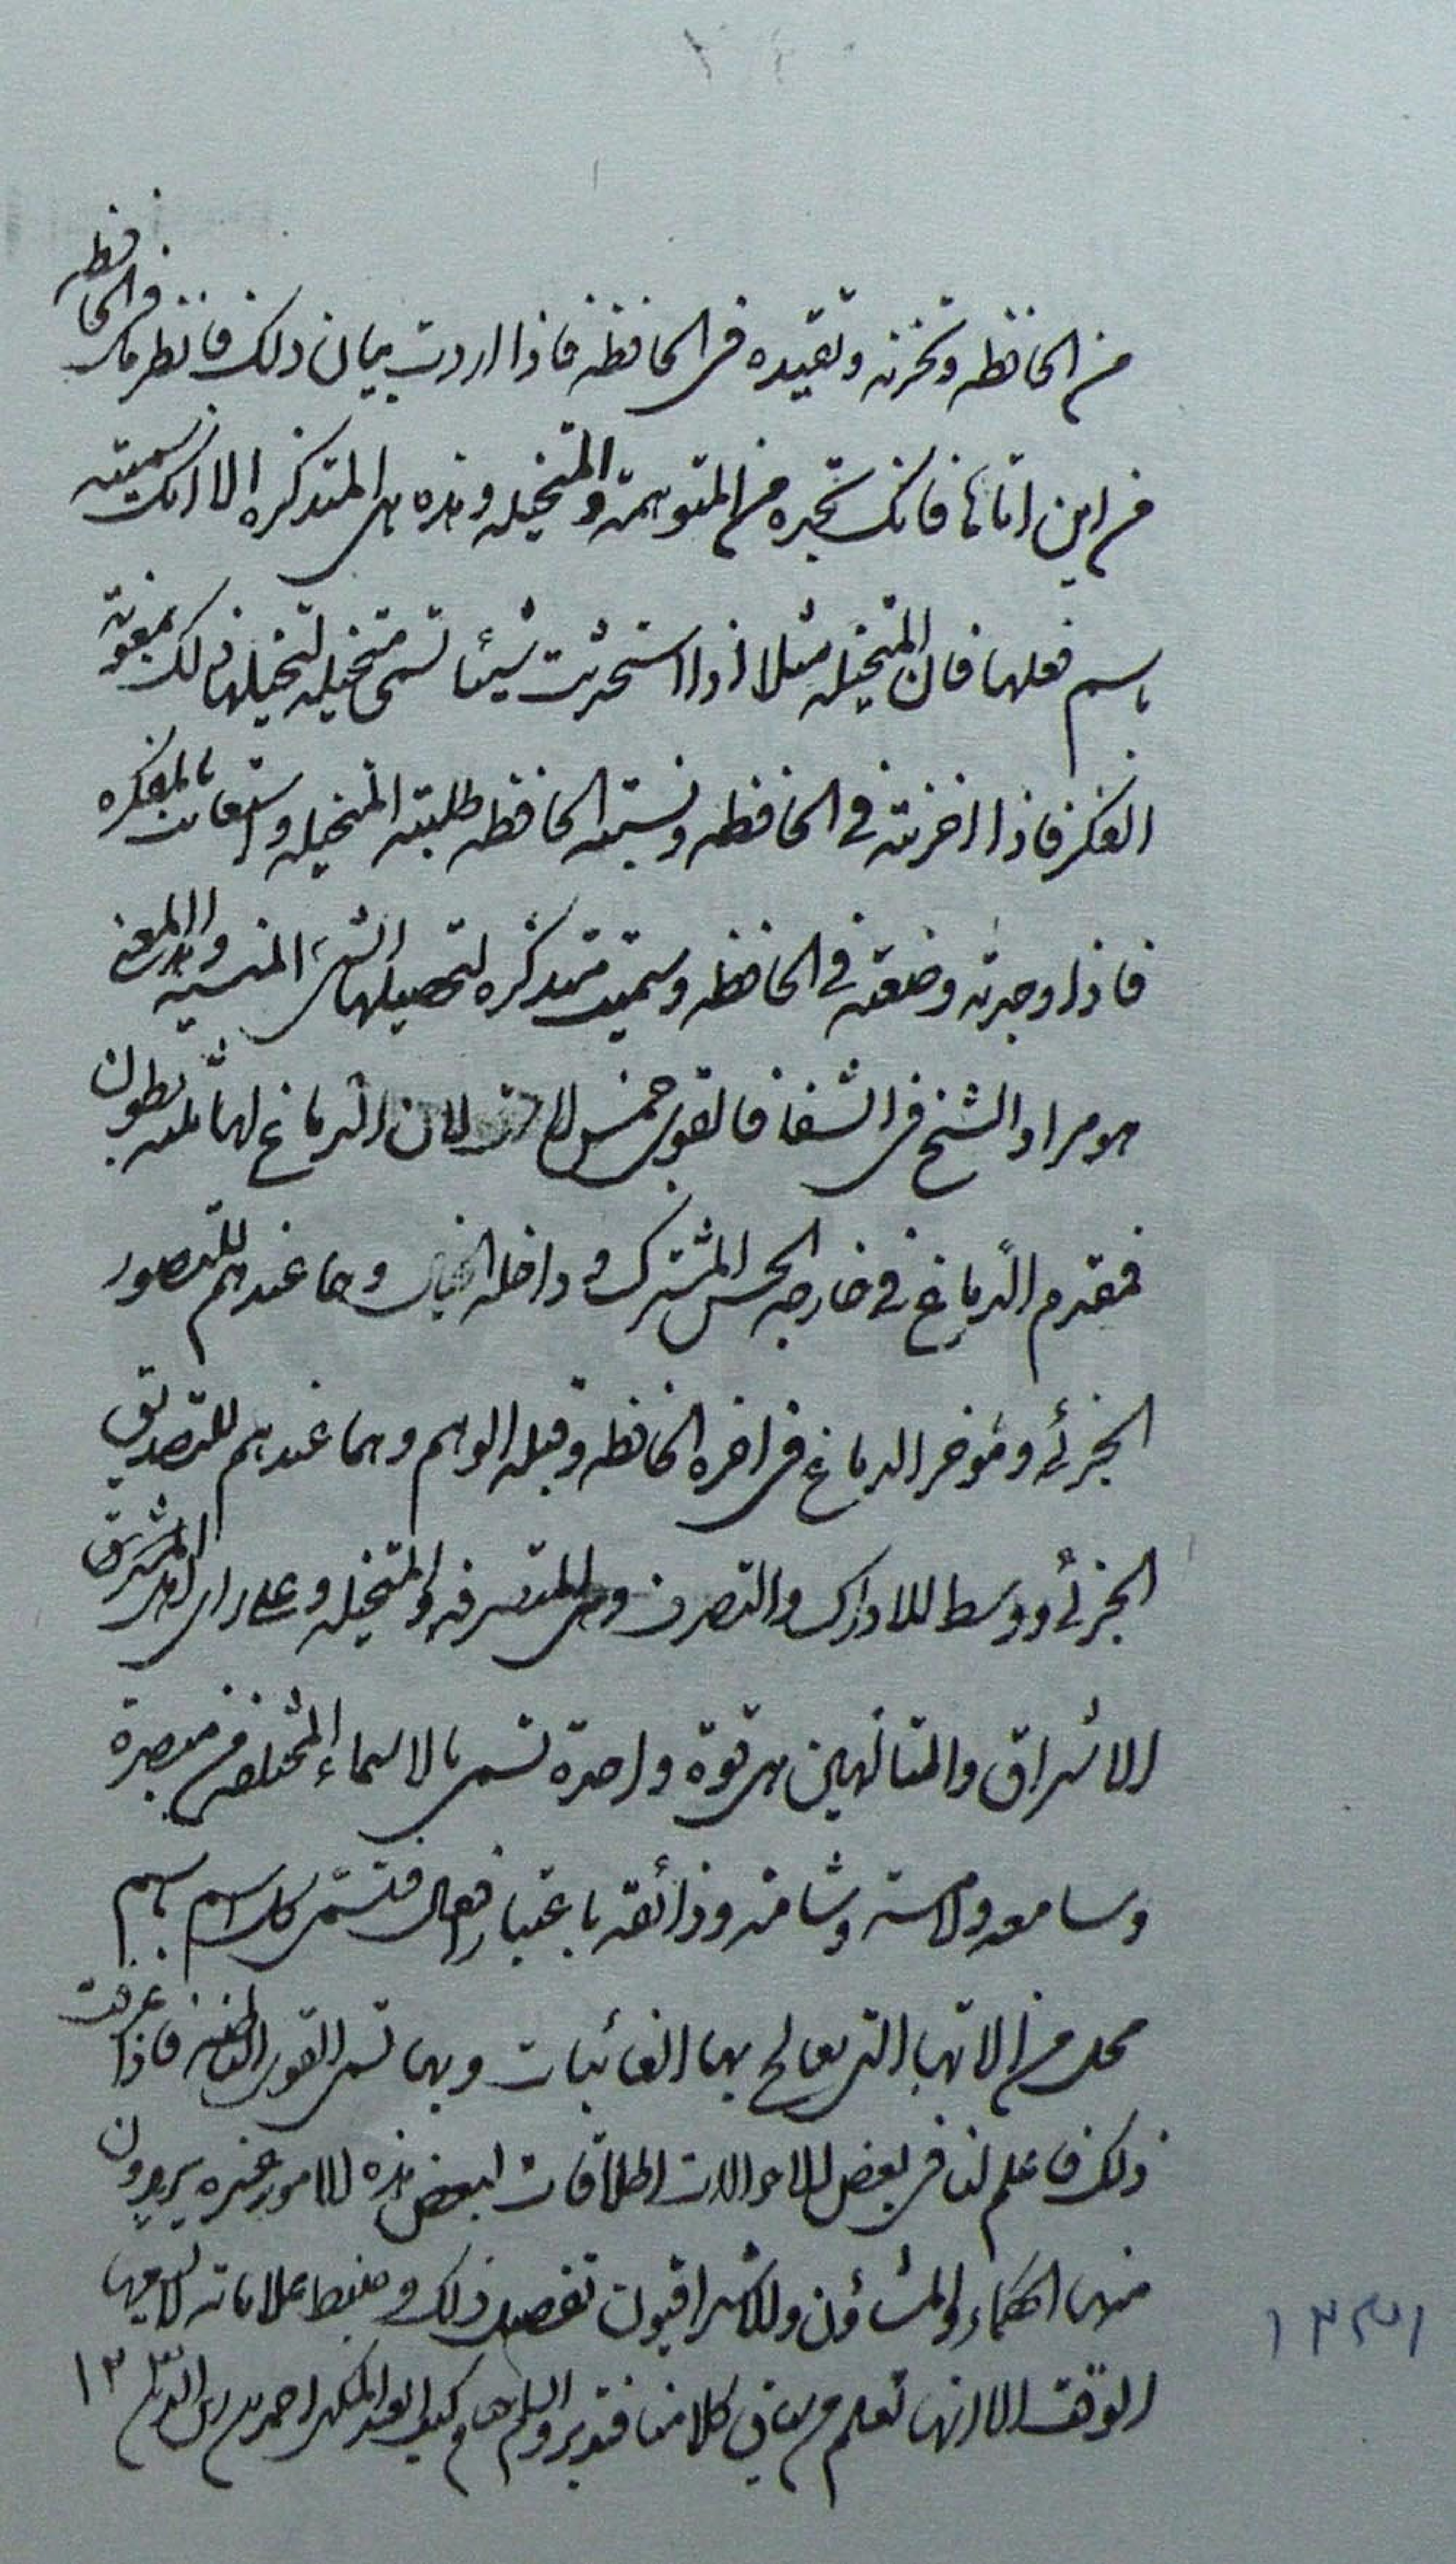 من الحافظه وتخزنه وتقيده فى الحافظه فاذا اردت بيان ذلك فانظر ما فى الحافظه
من اين اتاها فانك تجده من المتوهمة والمتخيله وهذه هى المتذكره الا انك سميته
باسم فعلها فان المتخيله مثلا اذا استحدثت شيئا تسمى متخيله لتخيلها ذلك بمعونة
الفكر فاذا اخزنته فى الحافظه ونسيته الحافظه طلبته المتخيله واستعانت بالمفكره
فاذا وجدته وضعته فى الحافظه وسميت متذكره لتحصيلها الشىء المنسيه والى هذا المعنى
هو مراد الشيخ فى الشفا فالقوى خمس لان الدماغ لها ثلثه بطون
فمقدم الدماغ فى خارجه الحس المشترك وفى داخله الخيال وهما عندهم للتصور
الجزئى ومؤخر الدماغ فى اخره الحافظه وقبله الوهم وهما عندهم للتصديق
الجزئى ووسط للادراك والتصرف وهى المتصرفه والمتخيله وعلى راى اهل
الاشراق والمتالهين هى قوة واحدة تسمى بالاسماء المختلفه من مبصرة
وسامعه ولامسة وشامة وذائقه باعتبار افعال فتسمى كل اسم باسم
محل من الاتها التى يعالج بها الغائبات وبها تسمى القوى الباطنه فاذا عرفت
ذلك فاعلم ان فى بعض الاحوالات اطلاقات لبعض هذه الامور غيره يريدون
منها الحكماء والمشاؤن والاشراقيون تفصيل ذلك وضبط علاماته لا يسعها
الوقت الا انها تعلم من معانى كلامنا فتدبر والسلم
١٣٣١